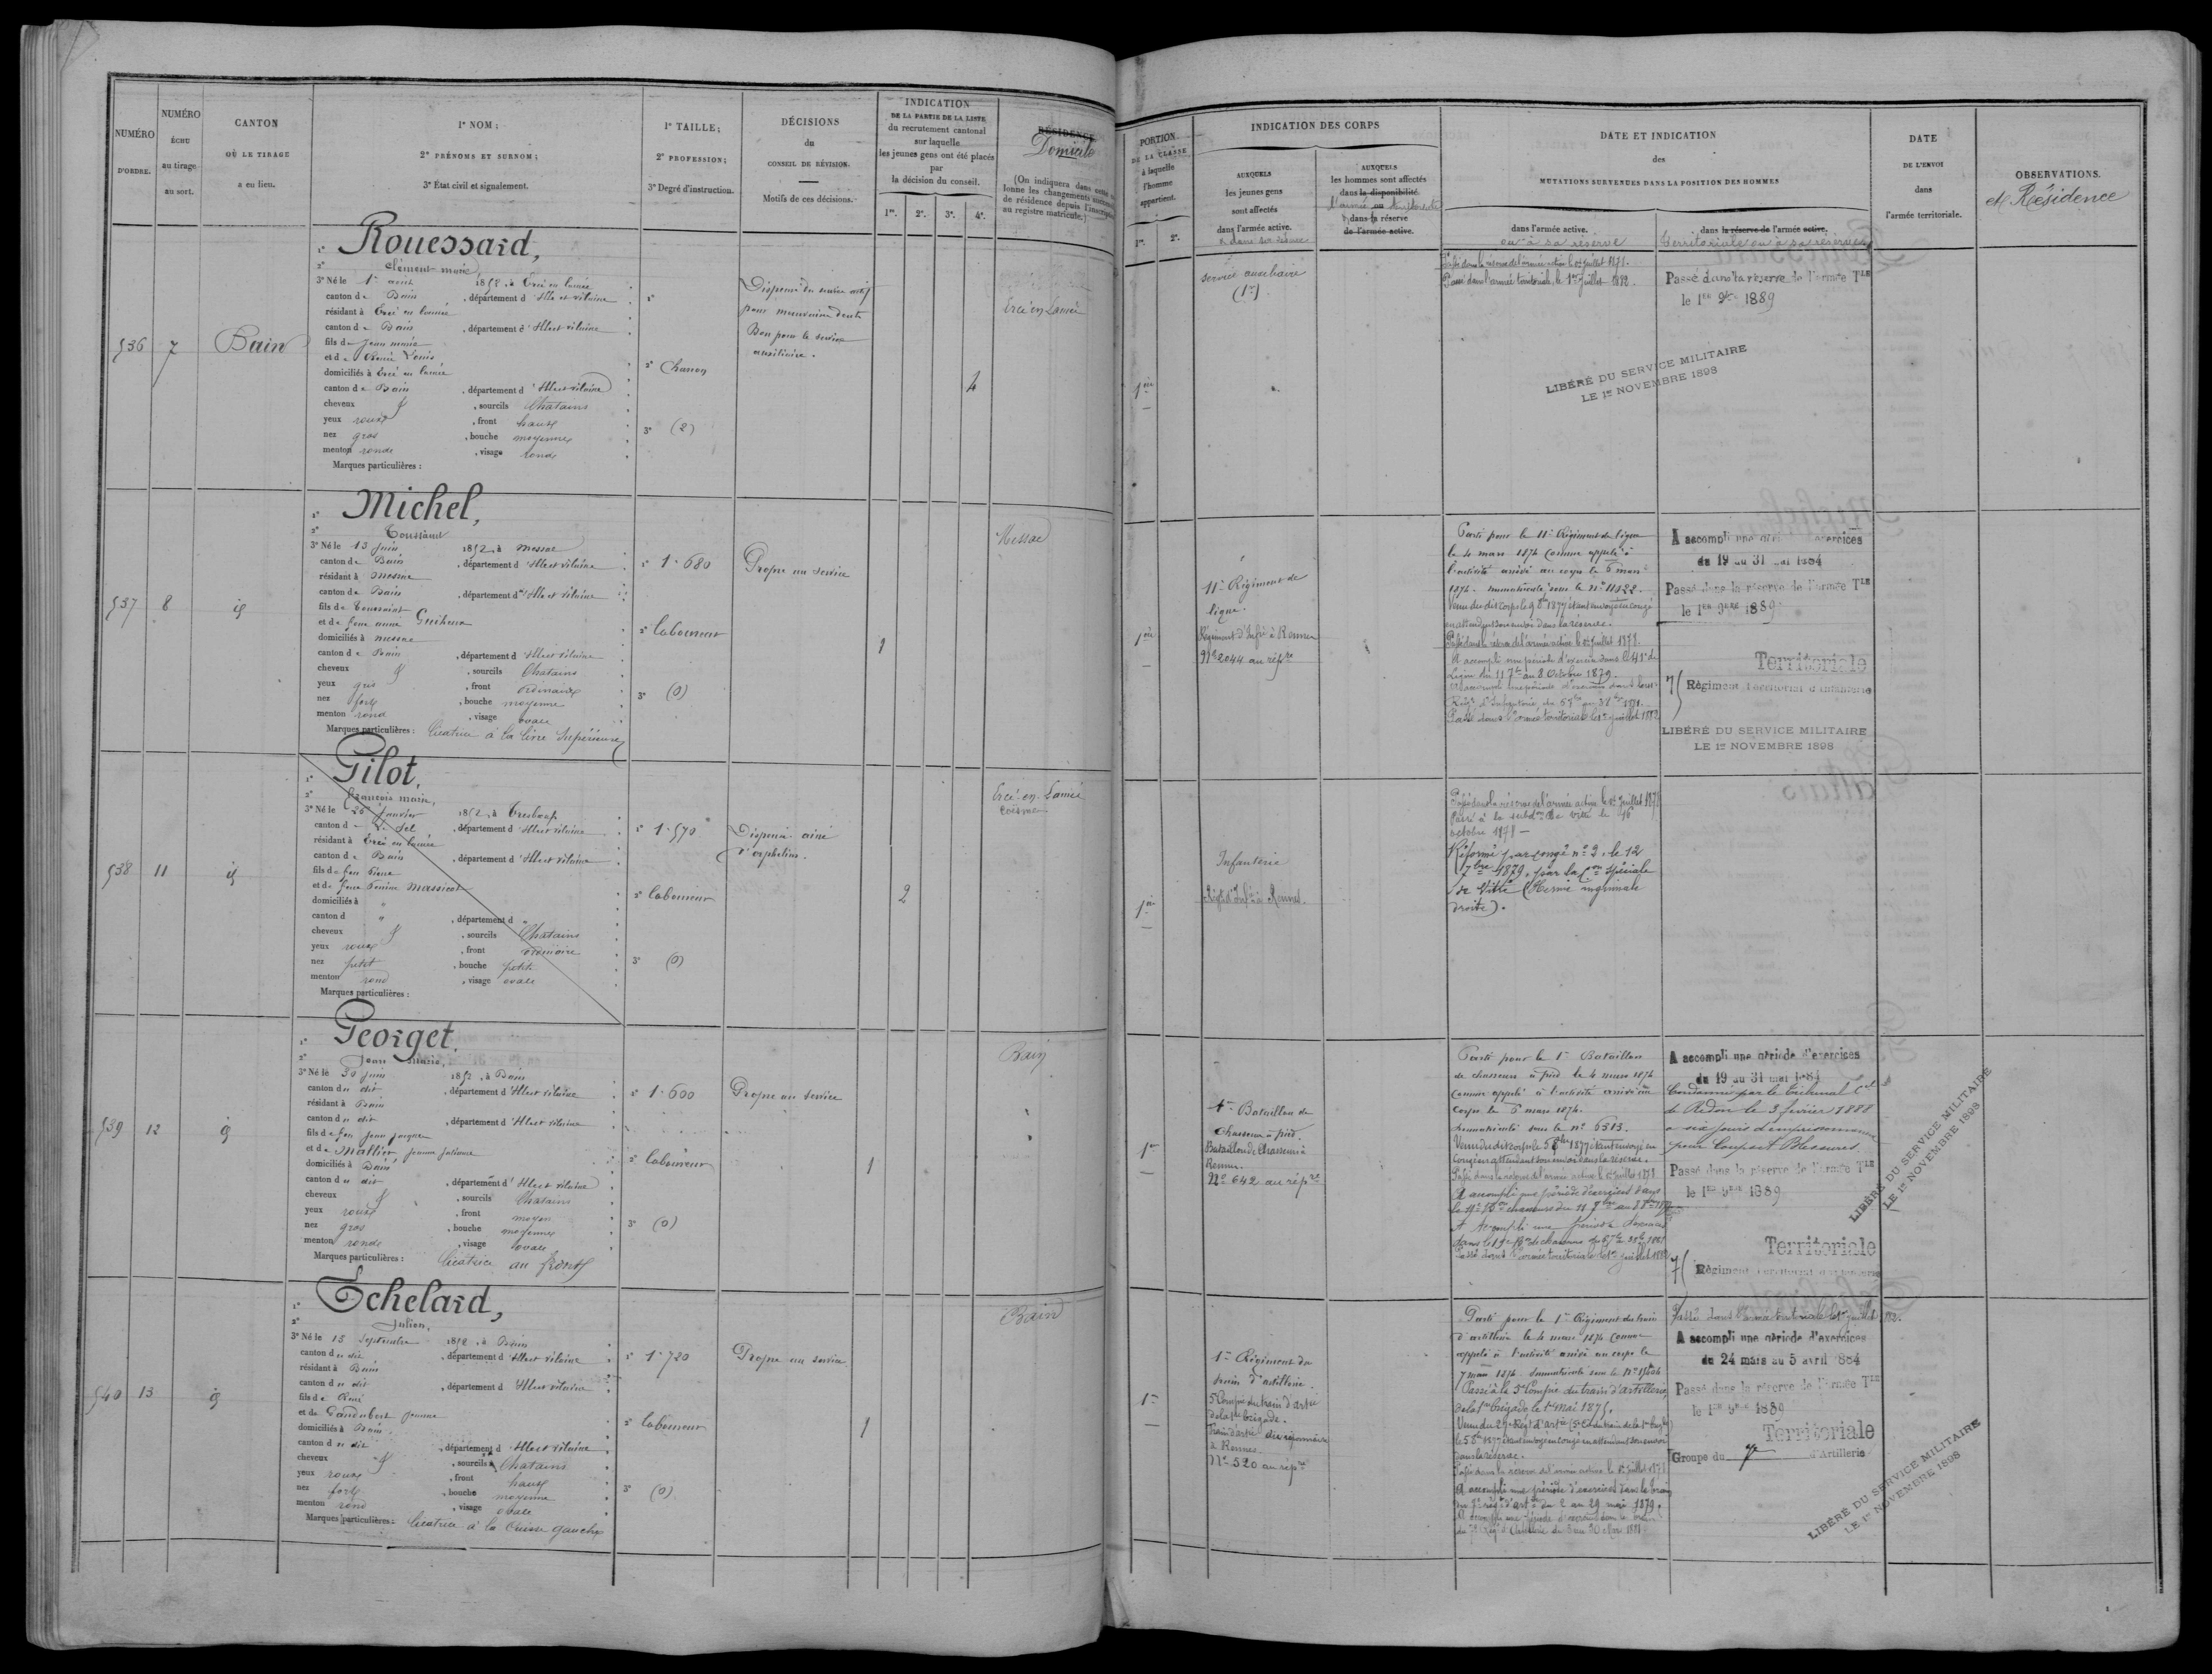 NUMÉRO
D'ORDRE.
NUMÉRO
ÉCHU
au tirage
au sort.
CANTON
OÙ LE TIRAGE
a eu lieu.
1° NOM ;
2° PRÉNOMS ET SURNOM ;
3° État civil et signalement.
1° TAILLE ;
2° PROFESSION ;
3° Degré d'instruction.
DÉCISIONS
du
CONSEIL DE RÉVISION.
Motifs de ces décisions.
INDICATION
DE LA PARTIE DE LA LISTE
du recrutement cantonal
sur laquelle
les jeunes gens ont été placés
par
la décision du conseil.
1re. 2e. 3e. 4e.
RÉSIDENCE
Domicile
(On indiquera dans cette
lonne les changements
de résidence depuis l'inscription
au registre matricule.)
PORTION
DE LA CLASSE
à laquelle
l'homme
appartient.
1re. 2e.
INDICATION DES CORPS
AUXQUELS
les jeunes gens
sont affectés
dans l'armée active.
AUXQUELS
les hommes sont affectés
dans la disponibilité
ou
dans la réserve
de l'armée active.
DATE ET INDICATION
des
MUTATIONS SURVENUES DANS LA POSITION DES HOMMES
dans l'armée active.
ou à sa réserve
dans la réserve de l'armée active.
territoriale ou à sa réserve
DATE
DE L'ENVOI
dans
l'armée territoriale.
OBSERVATIONS.
et Résidence
536 7 Bain
1° Rouessard,
2° Clément marie
3° Né le 1er août 1852, à Ercé en lamée
canton de Bain, département d'Ille et vilaine
résidant à Ercé en lamée
canton de Bain, département d'Ille et vilaine
fils de Jean marie
et de
domiciliés à Ercé en lamée
canton de Bain, département d'Ille et vilaine
cheveux &, sourcils Chatains
yeux roux, front haut
nez gros, bouche moyenne
menton rond, visage rond
Marques particulières :
1°
2° Charron
3° (2)
Dispensé du service actif
pour mauvaise denture
Bon pour le service
auxiliaire.
4
Ercé en Lamée
1re
Service auxiliaire
(1er)
Passé dans la réserve de l'armée active le 1er Juillet 1878.
Passé dans l'armée territoriale, le 1er Juillet 1882.
Passé dans la réserve de l'armée Tle
le 1er 9bre 1889
LIBÉRÉ DU SERVICE MILITAIRE
LE 1er NOVEMBRE 1898
537 8 id
1° Michel,
2° Toussaint
3° Né le 13 Juin 1852, à Messac
canton de Bain, département d'Ille et vilaine
résidant à Messac
canton de Bain, département d'Ille et vilaine
fils de Toussaint
et de feue anne Guiheux
domiciliés à Messac
canton de Bain, département d'Ille et vilaine
cheveux &, sourcils Chatains
yeux gris, front ordinaire
nez fort, bouche moyenne
menton rond, visage ovale
Marques particulières : Cicatrice à la lèvre Supérieure
1° 1.680
2° laboureur
3° (0)
Propre au service
1
Messac
1re
11e Régiment de
ligne.
Régiment d'Infie à Rennes
No 2044 au répre
Parti pour le 11e Régiment de ligne
le 4 mars 1874 comme appelé à
l'activité arrivé au corps le 6 mars
1874. immatriculé sous le no 11822.
Venu du dit corps le 9 8bre 1877 étant envoyé en congé
en attendant son envoi dans la réserve.
Passé dans la réserve de l'armée active le 1er Juillet 1878.
A accompli une période d'exercices dans le 41e de
Ligne du 11 7bre au 8 Octobre 1879.
Passé dans l'armée territoriale le 1er juillet 1882
A accompli une période d'exercices
du 19 au 31 mai 1884
Passé dans la réserve de l'armée Tle
le 1er 9bre 1889
Territoriale
7( Régiment Territorial d'Infanterie
LIBÉRÉ DU SERVICE MILITAIRE
LE 1er NOVEMBRE 1898
538 11 id
1° Gilot,
2° François marie,
3° Né le 26 Janvier 1852, à Tresboeuf
canton de Le Sel, département d'Ille et vilaine
résidant à Ercé en lamée
canton de Bain, département d'Ille et vilaine
fils de feu Pierre
et de feue Perrine Massicot
domiciliés à "
canton d ", département d
cheveux &, sourcils Chatains
yeux roux, front ordinaire
nez petit, bouche petite
menton rond, visage ovale
Marques particulières :
1° 1.570
2° laboureur
3° (0)
Dispensé aîné
d'orphelins.
2
Ercé-en-Lamée
Coësmes
1re
Infanterie
Régt d'Infie à Rennes.
Passé dans la réserve de l'armée active le 1er Juillet 1878
Passé à la subdon de Vitré le 16
octobre 1878 —
Réformé par congé no 2, le 12
7bre 1879, par la Con spéciale
de Vitré (Hernie inguinale
droite).
539 12 id
1° Georget,
2° Jean Marie,
3° Né le 30 juin 1852, à Bain
canton du dit, département d'Ille et vilaine
résidant à Bain
canton du dit, département d'Ille et vilaine
fils de feu Jean jacques
et de Mallier jeanne julienne
domiciliés à Bain
canton du dit, département d'Ille et vilaine
cheveux &, sourcils Chatains
yeux roux, front moyen
nez gros, bouche moyenne
menton rond, visage ovale
Marques particulières : Cicatrice au front
1° 1.600
2° laboureur
3° (0)
Propre au service
1
Bain
1re
Bataillon de
Chasseurs à pied.
Bataillon de Chasseurs à
Rennes.
No 642 au répre
Parti pour le 1er Bataillon
de chasseurs à pied le 4 mars 1874
comme appelé à l'activité arrivé au
corps le 6 mars 1874.
Immatriculé sous le no 6313.
Venu du dit corps le 1877 étant envoyé en
congé en attendant son envoi dans la réserve.
Passé dans la réserve de l'armée active le 1er Juillet 1878
A accompli une période d'exercices dans
A accompli une période d'exercices
Passé dans l'armée territoriale le 1er juillet 1882
A accompli une période d'exercices
du 19 au 31 mai 1884
Condamné par le tribunal Cel
de Redon le 3 février 1888
à six jours d'emprisonnement
pour Coups et Blessures.
Passé dans la réserve de l'armée Tle
le 1er 9bre 1889
Territoriale
7( Régiment Territorial d'Infanterie
LIBÉRÉ DU SERVICE MILITAIRE
LE 1er NOVEMBRE 1898
540 13 id
1° Echelard,
2° Julien,
3° Né le 15 Septembre 1852, à Bain
canton du dit, département d'Ille et vilaine
résidant à Bain
canton du dit, département d'Ille et vilaine
fils de René
et de Jeanne
domiciliés à Bain
canton du dit, département d'Ille et vilaine
cheveux &, sourcils Chatains
yeux roux, front haut
nez fort, bouche moyenne
menton rond, visage ovale
Marques particulières : Cicatrice à la Cuisse gauche
1° 1.720
2° laboureur
3° (0)
Propre au service
1
Bain
1re
1er Régiment du
train d'artillerie.
5e Compie du train d'artie
de la 1re brigade.
à Rennes.
No 520 au répre
Parti pour le 1er Régiment du train
d'artillerie le 4 mars 1874 comme
appelé à l'activité arrivé au corps le
7 mars 1874. Immatriculé sous le No
Passé à la 5e Compie du train d'artillerie,
de la 1re brigade le 1er Mai 1875.
dans la réserve.
Passé dans la réserve de l'armée active le 1er Juillet 1878
A accompli une période d'exercices dans le train
du 7e régt d'artie du 2 au 29 mai 1879.
Passé dans l'armée territoriale le 1er Juillet 1882.
A accompli une période d'exercices
du 24 mars au 5 avril 1884
Passé dans la réserve de l'armée Tle
le 1er 9bre 1889
Territoriale
Groupe du 7e d'Artillerie
LIBÉRÉ DU SERVICE MILITAIRE
LE 1er NOVEMBRE 1898